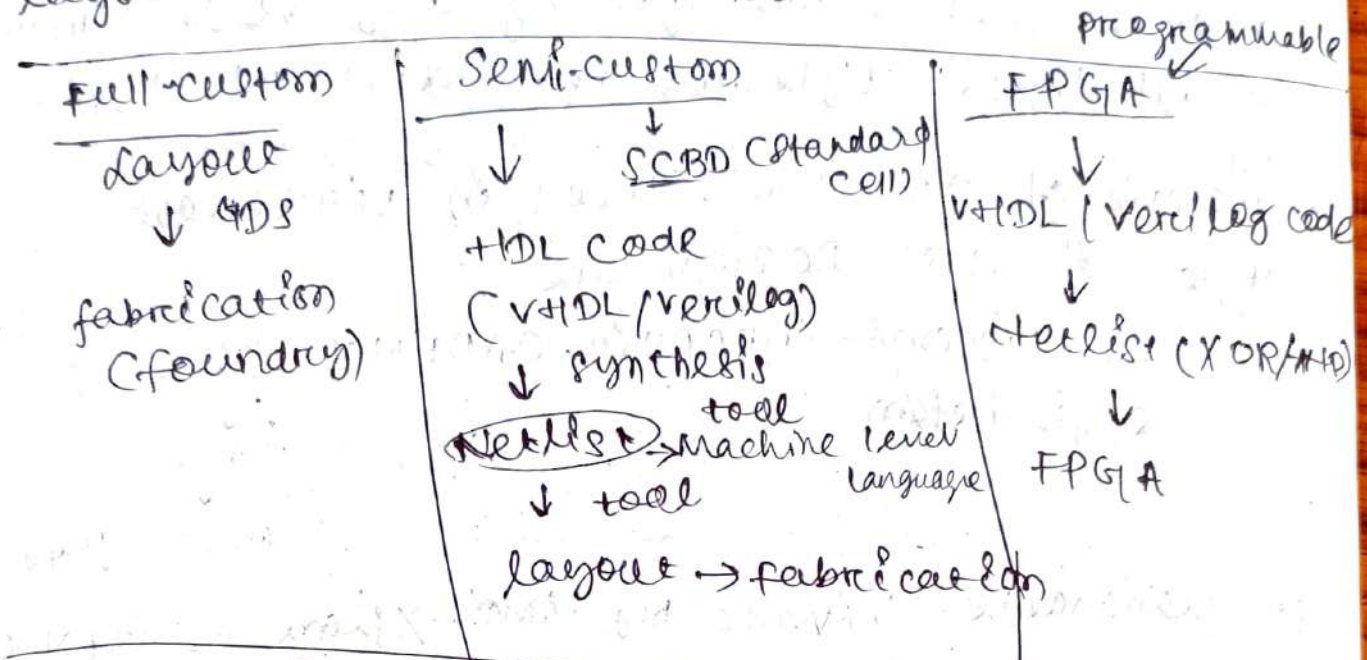 programmable
Full-custom
Layout
↓ GDS
fabrication
(foundry)
Semi-custom
↓ ↓
SCBD (standard
cell)
HDL Code
(VHDL/verilog)
↓ synthesis
tool
Netlist → Machine level
language
↓ tool
layout → fabrication
FPGA
↓
VHDL / Verilog code
↓
Netlist (XOR/AND)
↓
FPGA